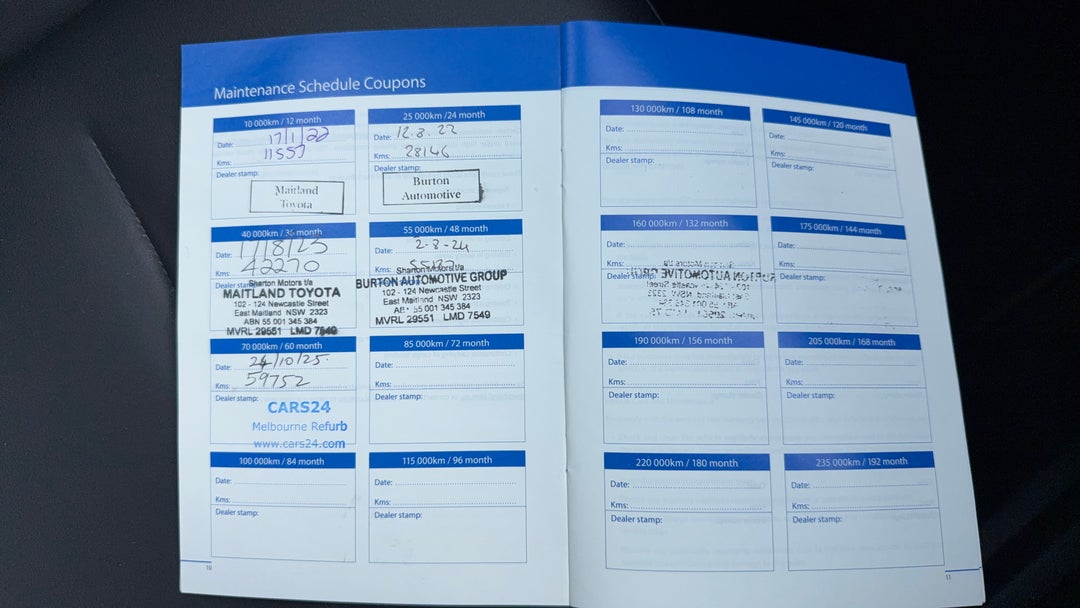 Maintenance Schedule Coupons
10 000km / 12 month
Date: 17/1/22
Kms: 11557
Dealer stamp:
Maitland
Toyota
25 000km /24 month
Date: 12.8.22
Kms: 28146
Dealer stamp:
Burton
Automotive
40 000km / 36 month
17/8/23
42270
Dealer
Sharton Motors t/a
MAITLAND TOYOTA
102 - 124 Newcastle Street
East Maitland NSW 2323
ABN 55 001 345 384
MVRL 29551 LMD 7549
55 000km / 48 month
Date: 2-8-24
Kms:
Sharton Motors t/a
BURTON AUTOMOTIVE GROUP
102 - 124 Newcastle Street
East Maitland NSW 2323
ABN 55 001 345 384
MVRL 29551 LMD 7549
70 000km / 60 month
Date: 24/10/25.
Kms: 59752
Dealer stamp:
CARS24
Melbourne Refurb
www.cars24.com
85 000km / 72 month
Date:
Kms:
Dealer stamp:
100 000km / 84 month
Date:
Kms:
Dealer stamp:
115 000km / 96 month
Date:
Kms:
Dealer stamp:
10
130 000km / 108 month
Date:
Kms:
Dealer stamp:
145 000km / 120 month
Date:
Kms:
Dealer stamp:
160 000km / 132 month
Date:
Kms:
Dealer stamp:
175 000km / 144 month
Date:
Kms:
Dealer stamp:
190 000km / 156 month
Date:
Kms:
Dealer stamp:
205 000km / 168 month
Date:
Kms:
Dealer stamp:
220 000km / 180 month
Date:
Kms:
Dealer stamp:
235 000km / 192 month
Date:
Kms:
Dealer stamp:
11